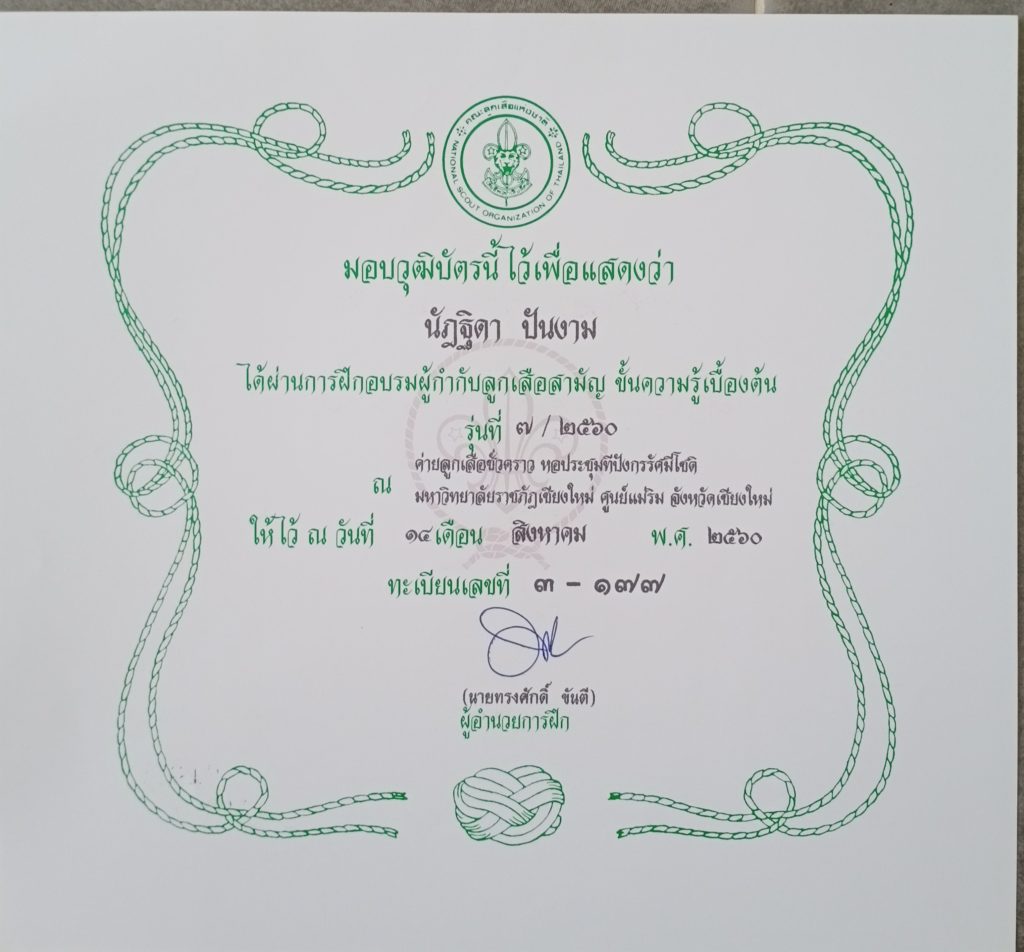 คณะลูกเสือแห่งชาติ
NATIONAL SCOUT ORGANIZATION OF THAILAND
มอบวุฒิบัตรนี้ไว้เพื่อแสดงว่า
นัฏฐิดา ปันงาม
ได้ผ่านการฝึกอบรมผู้กำกับลูกเสือสามัญ ขั้นความรู้เบื้องต้น
รุ่นที่ ๗ / ๒๕๖๐
ค่ายลูกเสือชั่วคราว หอประชุมทีปังกรรัศมีโชติ
ณ มหาวิทยาลัยราชภัฏเชียงใหม่ ศูนย์แม่ริม จังหวัดเชียงใหม่
ให้ไว้ ณ วันที่ ๑๔ เดือน สิงหาคม พ.ศ. ๒๕๖๐
ทะเบียนเลขที่ ๓ - ๑๗๗
(นายทรงศักดิ์ ขันตี)
ผู้อำนวยการฝึก